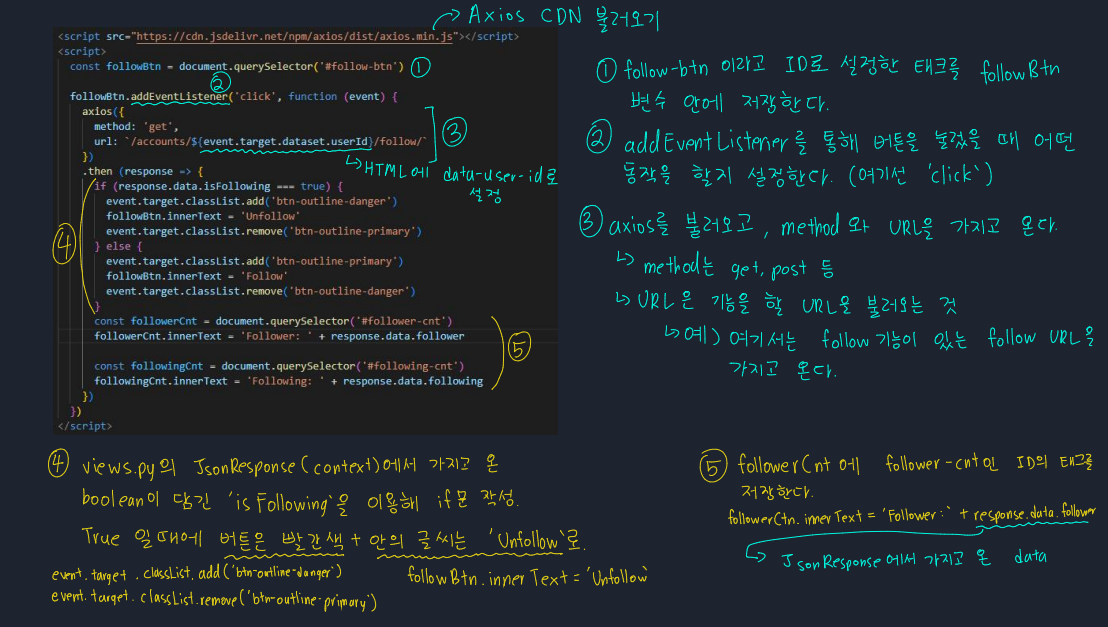 Axios CDN 불러오기
<script src="https://cdn.jsdelivr.net/npm/axios/dist/axios.min.js"></script>
<script>
const followBtn = document.querySelector('#follow-btn') ①
②
followBtn.addEventListener('click', function (event) {
axios({
method: 'get',
url: `/accounts/${event.target.dataset.userId}/follow/`
})
③
↳ HTML에 data-user-id로
설정
.then (response => {
if (response.data.isFollowing === true) {
event.target.classList.add('btn-outline-danger')
followBtn.innerText = 'Unfollow'
event.target.classList.remove('btn-outline-primary')
} else {
event.target.classList.add('btn-outline-primary')
followBtn.innerText = 'Follow'
event.target.classList.remove('btn-outline-danger')
}
④
const followerCnt = document.querySelector('#follower-cnt')
followerCnt.innerText = 'Follower: ' + response.data.follower
const followingCnt = document.querySelector('#following-cnt')
followingCnt.innerText = 'Following: ' + response.data.following
⑤
})
})
</script>
① follow-btn 이라고 ID로 설정한 태크를 followBtn
변수 안에 저장한다.
② addEventListener를 통해 버튼을 눌렀을 때 어떤
동작을 할지 설정한다. (여기선 'click')
③ axios를 불러오고, method 와 URL을 가지고 온다.
↳ method는 get, post 등
↳ URL은 기능을 할 URL을 불러오는 것
↳ 예) 여기서는 follow 기능이 있는 follow URL을
가지고 온다.
④ views.py의 JsonResponse(context)에서 가지고 온
boolean이 담긴 'isFollowing'을 이용해 if문 작성.
True 일때에 버튼은 빨간색 + 안의 글씨는 'Unfollow'로.
event.target.classList.add('btn-outline-danger')
event.target.classList.remove('btn-outline-primary')
followBtn.innerText = 'Unfollow'
⑤ followerCnt 에 follower-cnt인 ID의 태그를
저장한다.
followerCtn.innerText = 'Follower:' + response.data.follower
↳ JsonResponse에서 가지고 온 data